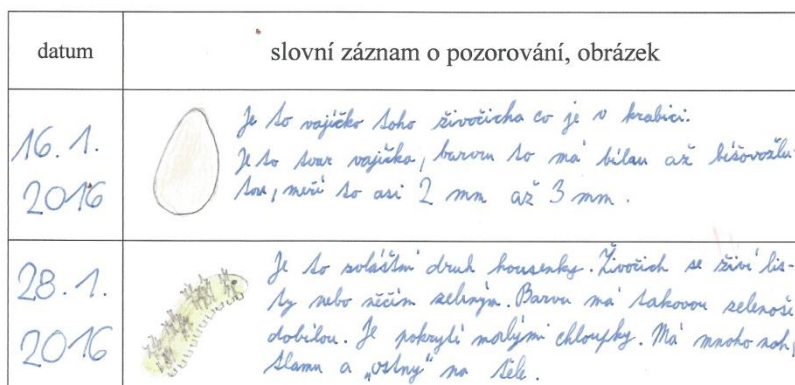 datum
slovní záznam o pozorování, obrázek
16. 1.
2016
Je to vajíčko toho živočicha co je v krabici.
Je to tvar vajíčka, barvu to má bílau až béžovožlu-
tou, měří to asi 2 mm až 3 mm.
28. 1.
2016
Je to zvláštní druh housenky. Živočich se živí lis-
ty nebo něčím zeleným. Barvu má takovou zelenoši
dobílou. Je pokrytí malými chloupky. Má mnoho noh,
tlamu a „ostny" na těle.